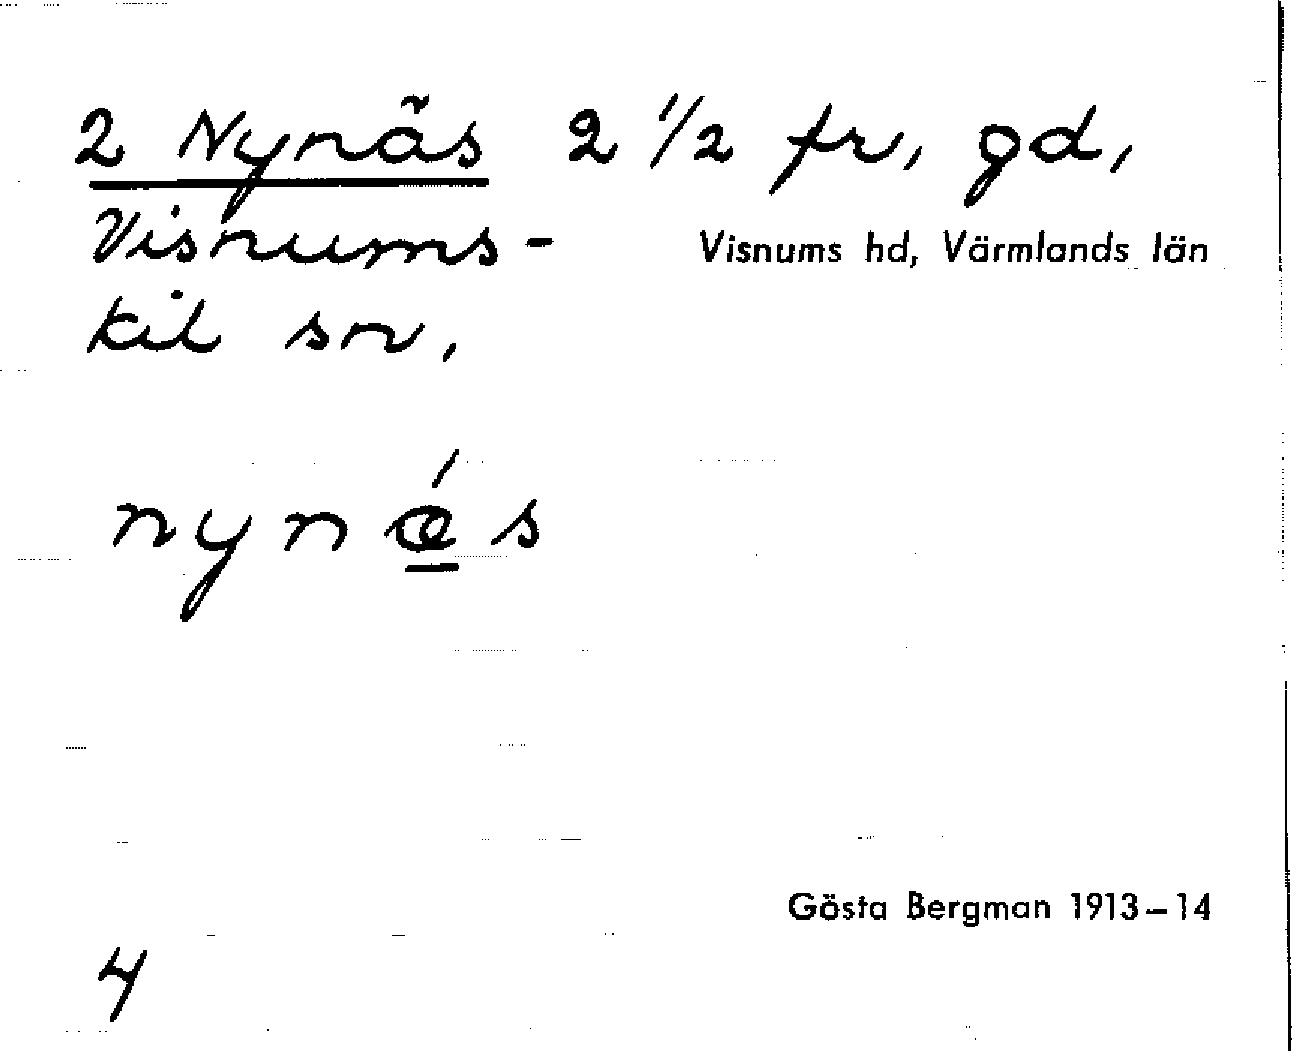 2 Nynäs 2 1/2 fr, gd,
Visnums-
kil sn,
Visnums hd, Värmlands län
nynǽs
Gösta Bergman 1913–14
4